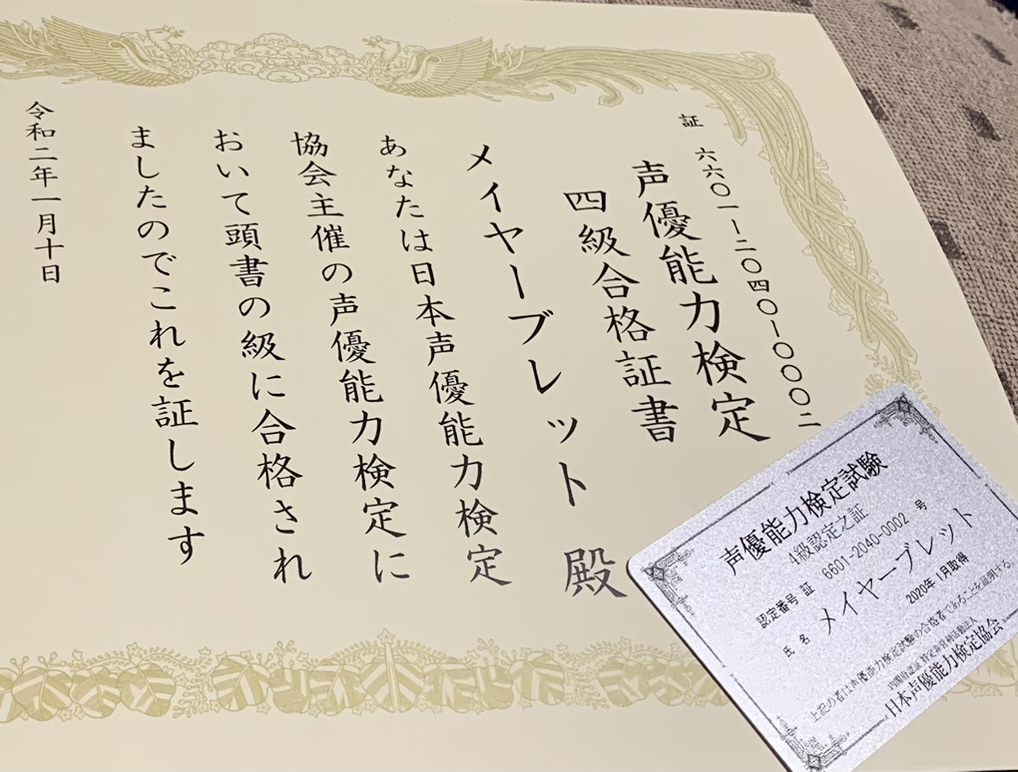 証 六六〇一ー二〇四〇ー〇〇〇二
声優能力検定
四級合格証書
メイヤーブレット 殿
あなたは日本声優能力検定
協会主催の声優能力検定に
おいて頭書の級に合格され
ましたのでこれを証します
令和二年一月十日
声優能力検定試験
4級認定之証
認定番号 証 6601-2040-0002 号
氏名 メイヤーブレット
2020年 1月取得
上記の者は声優能力検定試験の合格者であることを証明する。
内閣府認証 特定非営利活動法人
日本声優能力検定協会